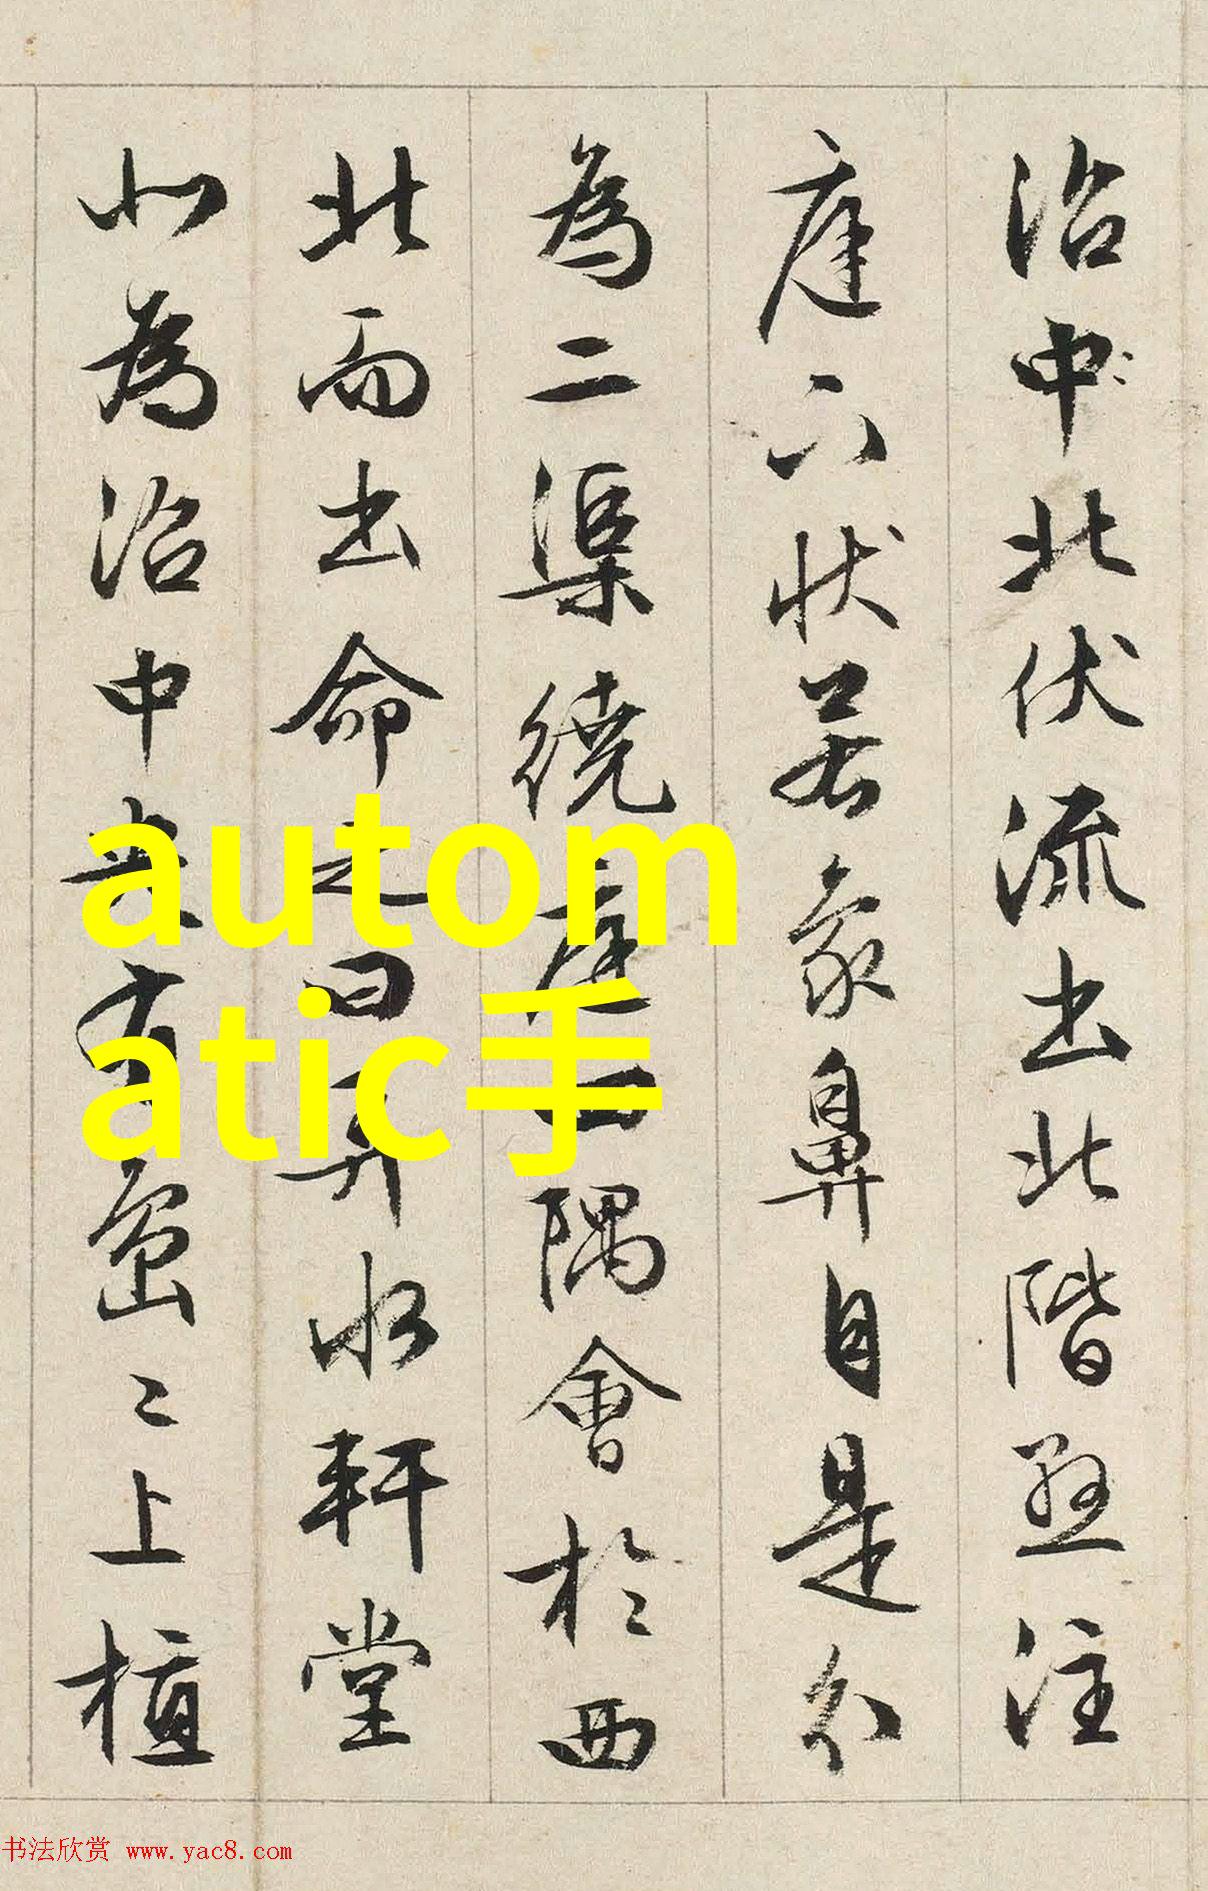 沼中北伏流出北階懸注
庭下狀若象鼻自是分
為二渠繞庭四隅會於西
北而出命之曰弄水軒堂
北為沼中央有島〻上植
autom
atic手
书法欣赏 www.yac8.com